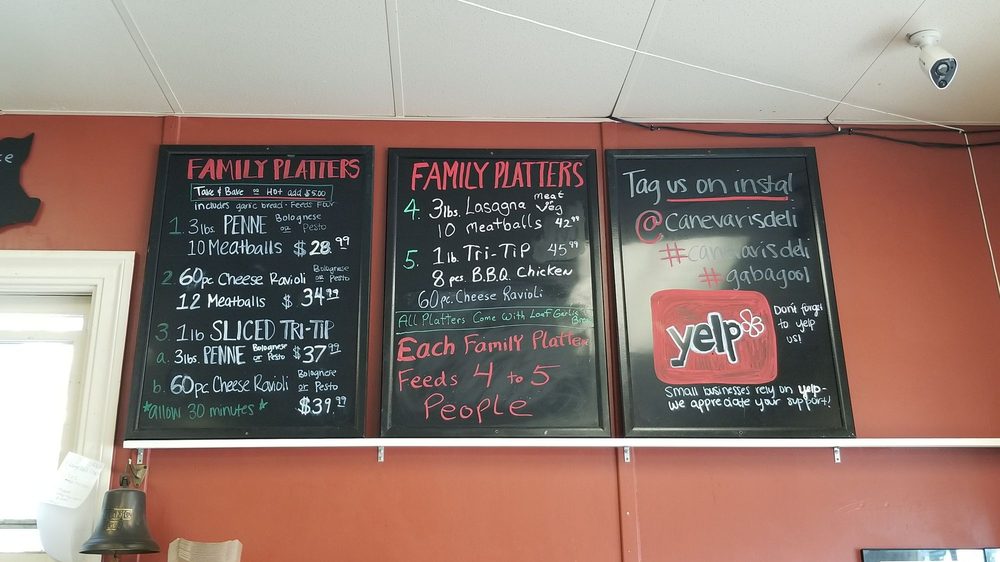 FAMILY PLATTERS
Take & Bake or Hot add $5.00
includes garlic bread · Feeds Four
1. 3lbs. PENNE Bolognese or Pesto
10 Meatballs $28.99
2. 60pc Cheese Ravioli Bolognese or Pesto
12 Meatballs $34.99
3. 1lb SLICED TRI-TIP
a. 3lbs. PENNE Bolognese or Pesto $37.99
b. 60pc. Cheese Ravioli Bolognese or Pesto
*allow 30 minutes* $39.99
FAMILY PLATTERS
4. 3lbs. Lasagna meat or veg
10 Meatballs 42.99
5. 1lb Tri-Tip 45.99
8 pcs. B.B.Q. Chicken
60pc. Cheese Ravioli
All Platters Come With Loaf Garlic Bread
Each Family Platter
Feeds 4 to 5
People
Tag us on insta!
@canevarisdeli
#canevarisdeli
#gabagool
yelp
Don't forget
to yelp
us!
Small businesses rely on yelp-
we appreciate your support!